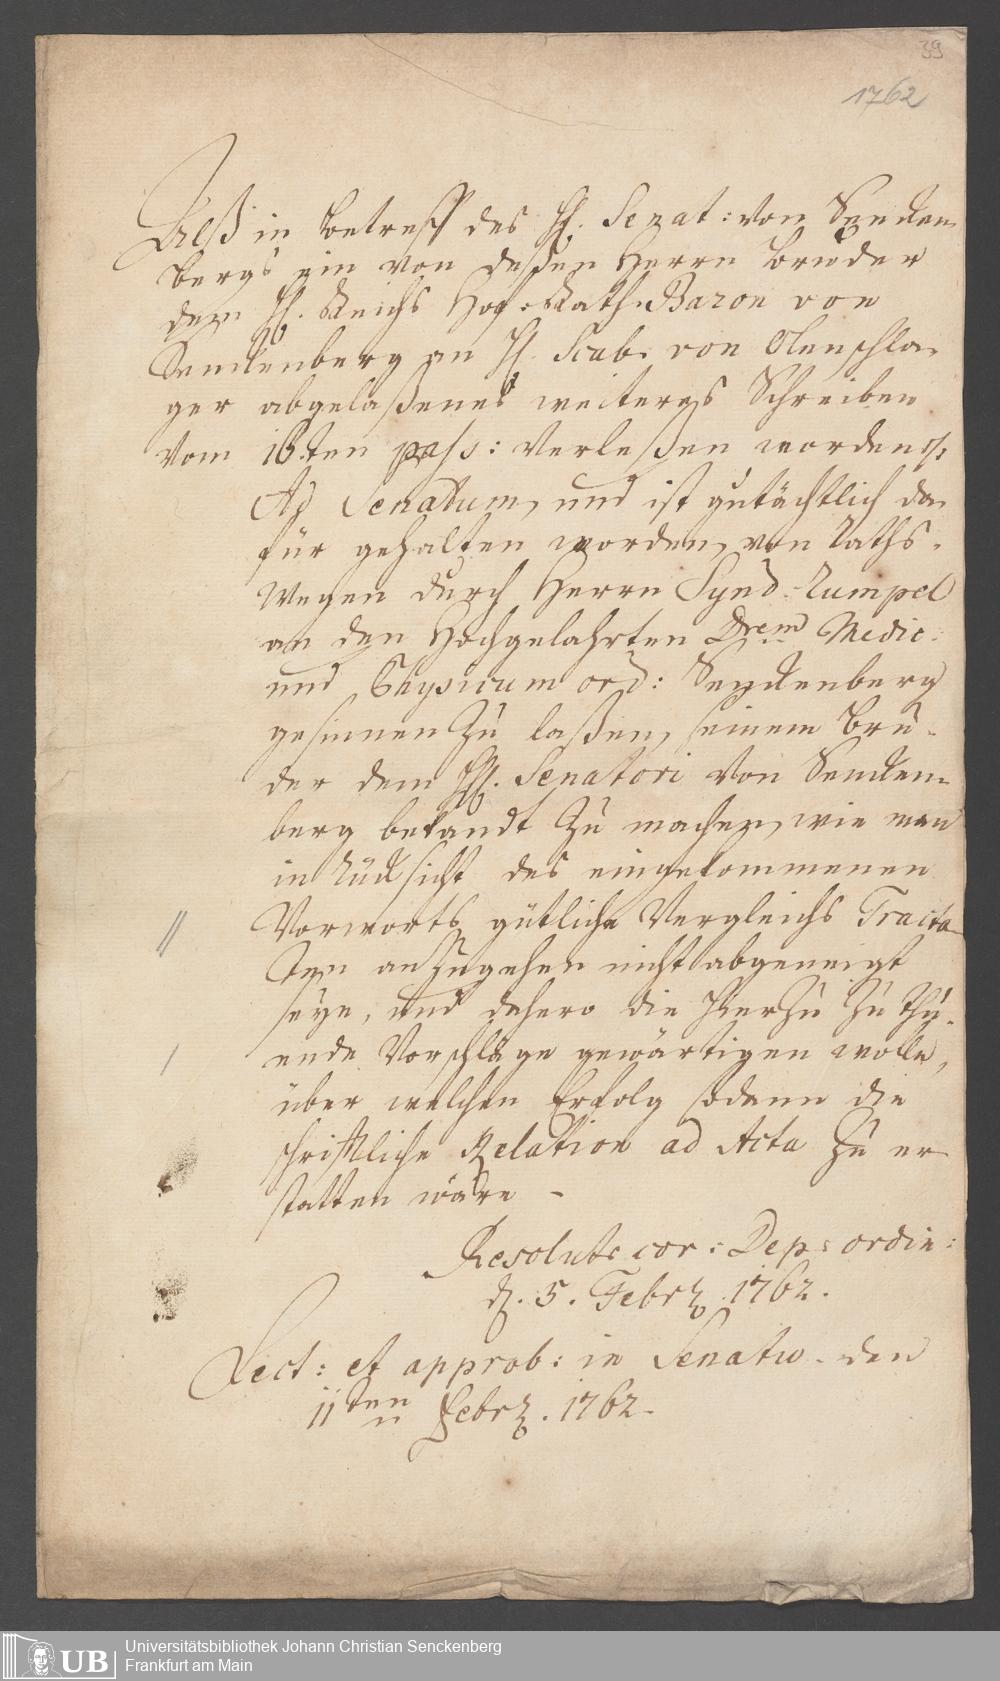 39
1762
Alß in betreff des H. Senat: von Sencken-
bergs ein von deßen Herrn Bruder
dem H. Reichs Hof-Rath Baron von
Senckenberg an H. Scab. von Olenschla-
ger abgelaßenes weiteres Schreiben
vom 16.ten pass: verleßen worden
Ad Senatum, und ist gutächtlich da-
für gehalten worden, von Raths-
wegen durch Herrn Synd. Rumpel
an den Hochgelahrten Drem Medic:
und Physicum ord: Senckenberg
gesinnen zu laßen, seinem Bru-
der dem H. Senatori von Sencken-
berg bekandt zu machen, wie man
in Rücksicht des eingekommenen
Vorworts gütliche Vergleichs Tracta-
ten anzugehen nicht abgeneigt
seye, und dahero die hierzu zu thu-
ende Vorschläge gewärtigen wolle,
über welchen Erfolg sodann die
schriftliche Relation ad Acta zu er-
statten wäre -
Resolut: cor: Dep: ordin:
d. 5. Febr. 1762.
Lect: et approb: in Senatu. den
11ten Febr. 1762.
UB
Universitätsbibliothek Johann Christian Senckenberg
Frankfurt am Main